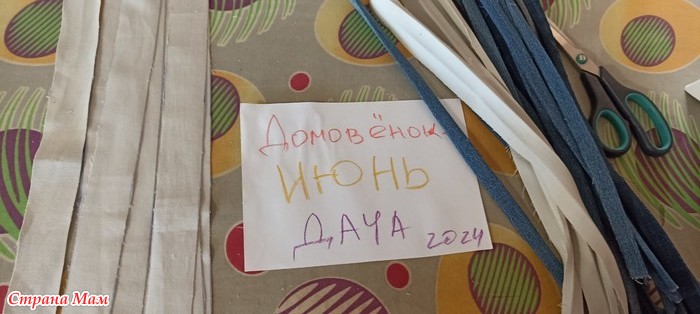 Домовёнок
ИЮНЬ
ДАЧА 2024
Страна Мам